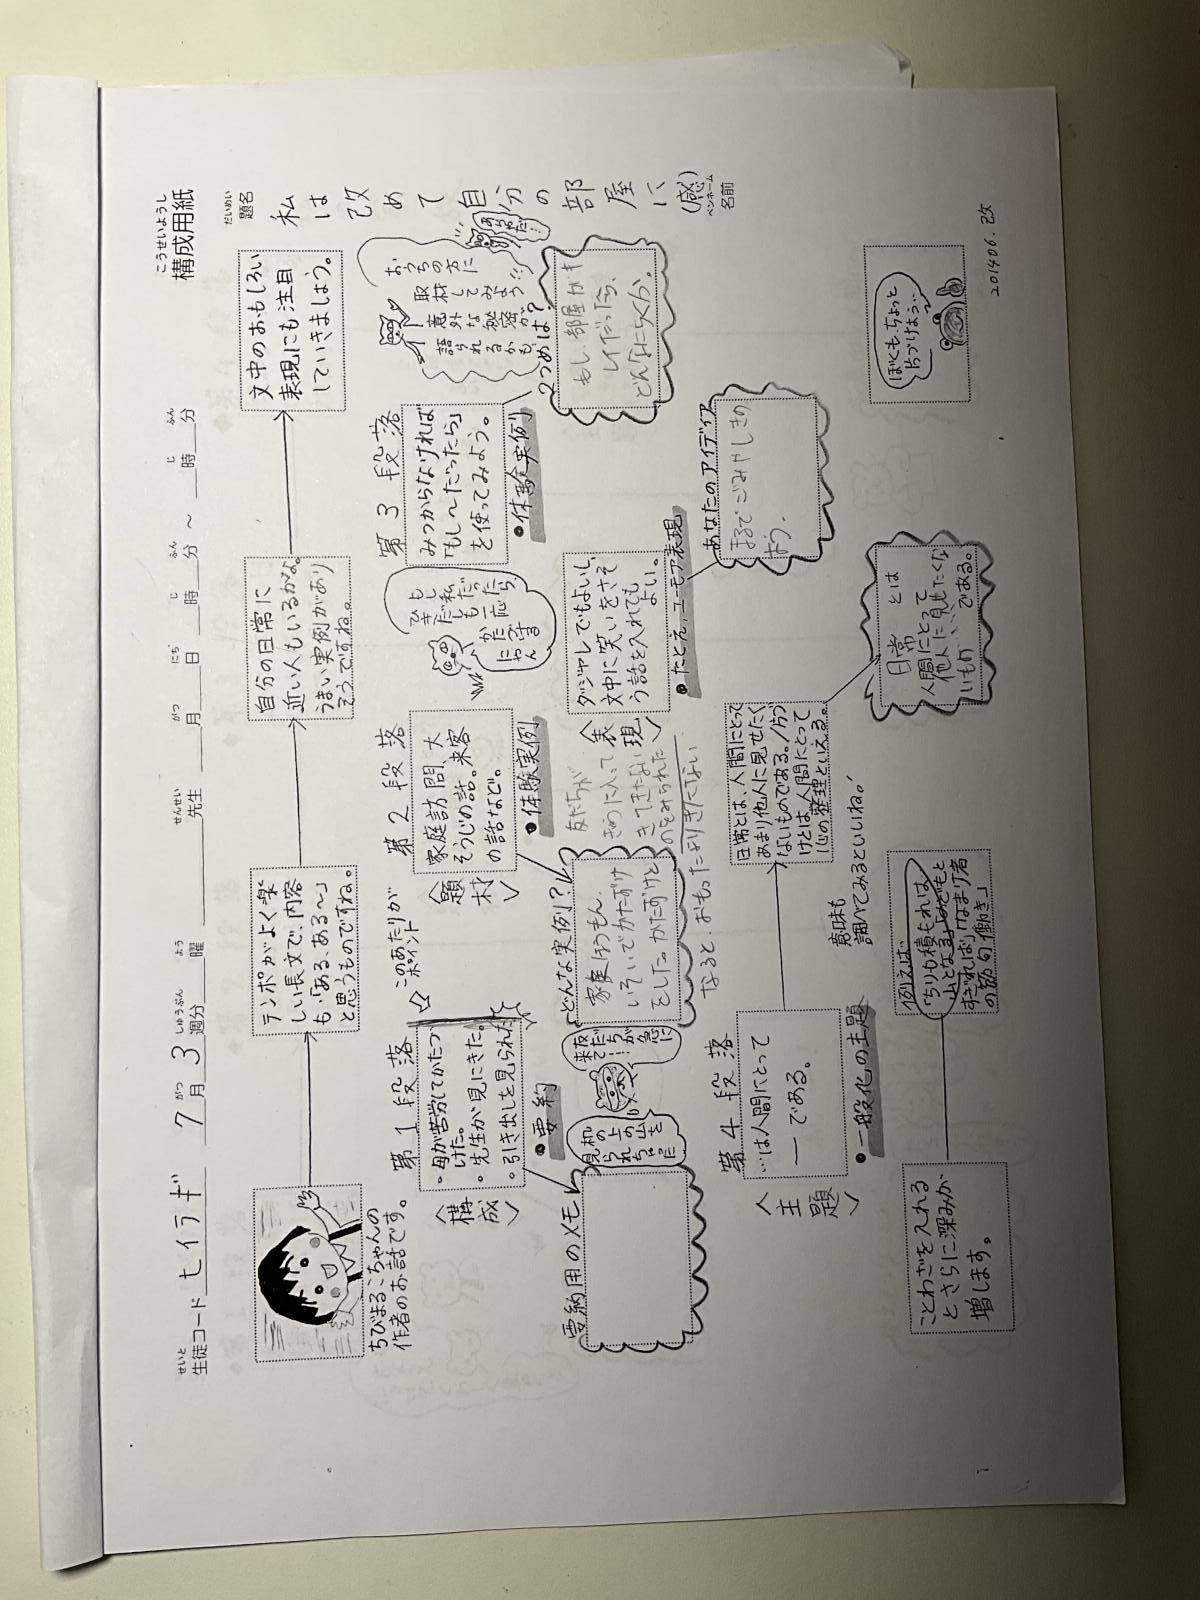 こうせいようし
構成用紙
せいと
生徒コード ヒイラギ
がつ しゅうぶん よう
7月 3週分 曜
せんせい
先生
がつ にち じ ふん じ ふん
月 日 時 分 ～ 時 分
だいめい
題名
私は改めて自分の部屋に(感)
ペンネーム
名前
ちびまるこちゃんの
作者のお話です。
テンポがよく楽
しい長文で、内容
も、「ある、ある～」
と思うものですね。
自分の日常に
近い人もいるかな。
うまい実例があり
そうですね。
文中のおもしろい
表現にも注目
していきましょう。
第1段落
このあたりが
ポイント
〈構成〉
・母が苦労してかたづ
けた。
・先生が見にきた。
・引き出しを見られた
●要約
要約用のメモ
机の上の山を
見られちゃった
友だちが急に
来て…!
第2段落
〈題材〉
家庭訪問、大
そうじの話。来客
の話など。
●体験実例
どんな実例?
いそいでかたずけ
をした。かたずけと
友だちが
きゅうに入って
きてきたない
のをみられた
なると、おもったよりきたない
もし
ひきだしも
私だったら
一応
かたづける
にゃん
第3段落
みつからなければ
「もし～だったら」
を使ってみよう。
●体験実例
おうちの方に
取材してみよう!!
意外な秘密が
語られるかも
2つめは?
もし、部屋がキ
レイだったら、
どんなにらくか。
〈表現〉
ダジャレでもよいし、
文中に笑いをさそ
う話を入れても
よい。
●たとえ、ユーモア表現
あなたのアイディア
まるでごみやしきの
よう.
第4段落
〈主題〉
…は人間にとって
― である。
●一般化の主題
日常とは、人間にとって
あまり他人に見せたく
ないものである。/片づ
けとは、人間にとって
心の整理といえる。
日常 とは
人間にとって
他人に見せたくな
いもの
である。
ことわざを入れる
とさらに深みが
増します。
例えば
「ちりも積もれば
山となる」
「なまけ者
の節句働き」
意味も
調べてみるといいね。
ぼくも、ちょっと
片づけよう…
201406.改